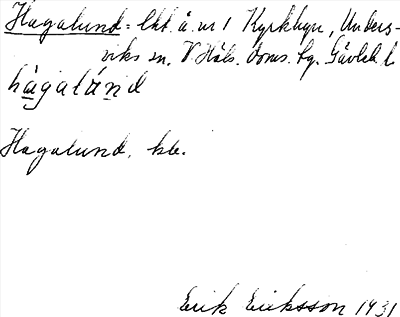 Hagalund = lht å nr 1 Kyrkbyn, Unders-
viks sn, V Häls. doms. sg. Gävleb. l
hàgalúnd
Hagalund, kb.
Erik Eriksson 1931